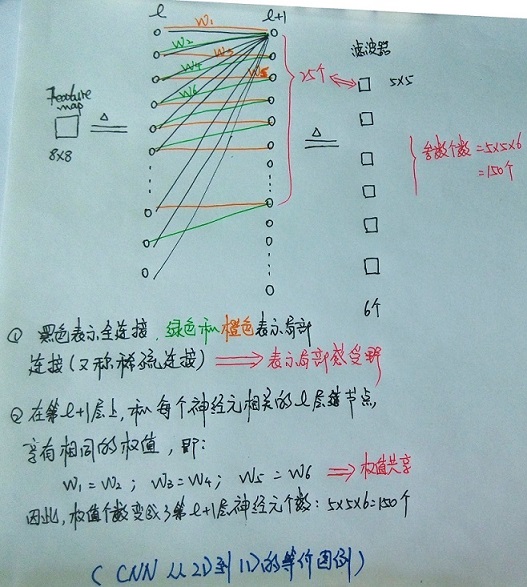 l
l+1
W₁
W₂
W₃
W₄
W₅
W₆
Feature map
8×8
≜
25个
≜
滤波器
5×5
参数个数 = 5×5×6
= 150个
6个
① 黑色表示全连接, 绿色和橙色表示局部
连接(又称稀疏连接) ⟹ 表示局部感受野
② 在第l+1层上, 和每个神经元相关的l层结节点,
享有相同的权值, 即:
W₁ = W₂ ; W₃ = W₄ ; W₅ = W₆ ⟹ 权值共享
因此, 权值个数变成了第l+1层神经元个数: 5×5×6=150个
( CNN 从2D到1D的等价图例 )